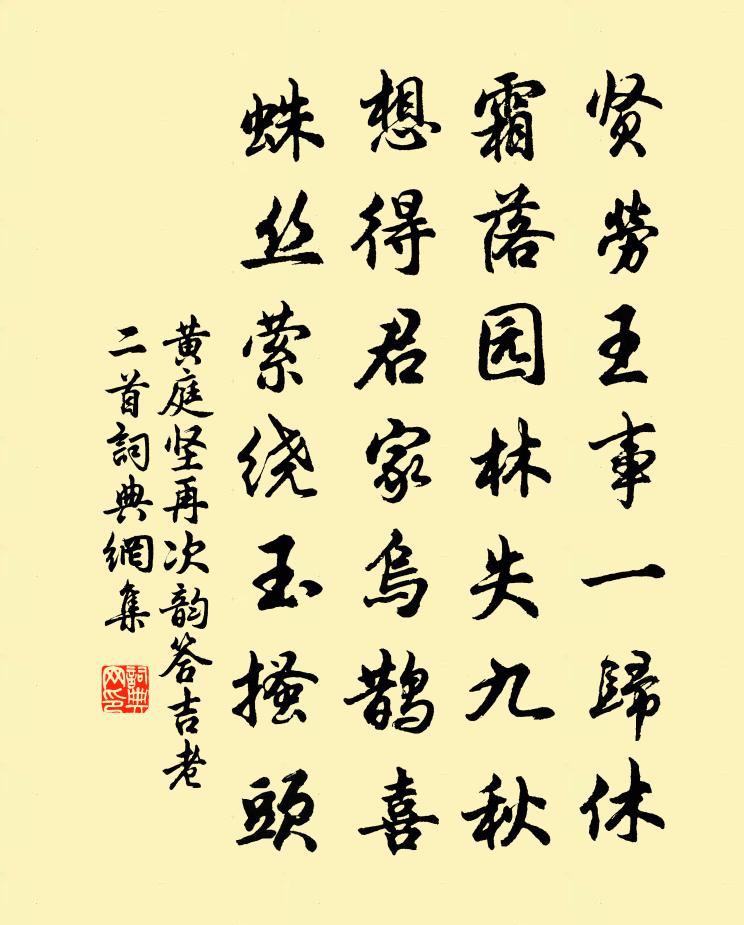 贤勞王事一歸休
霜落园林失九秋
想得君家烏鵲喜
蛛丝萦绕玉搔頭
黄庭坚再次韵答吉老
二首詞典網集
詞典网印